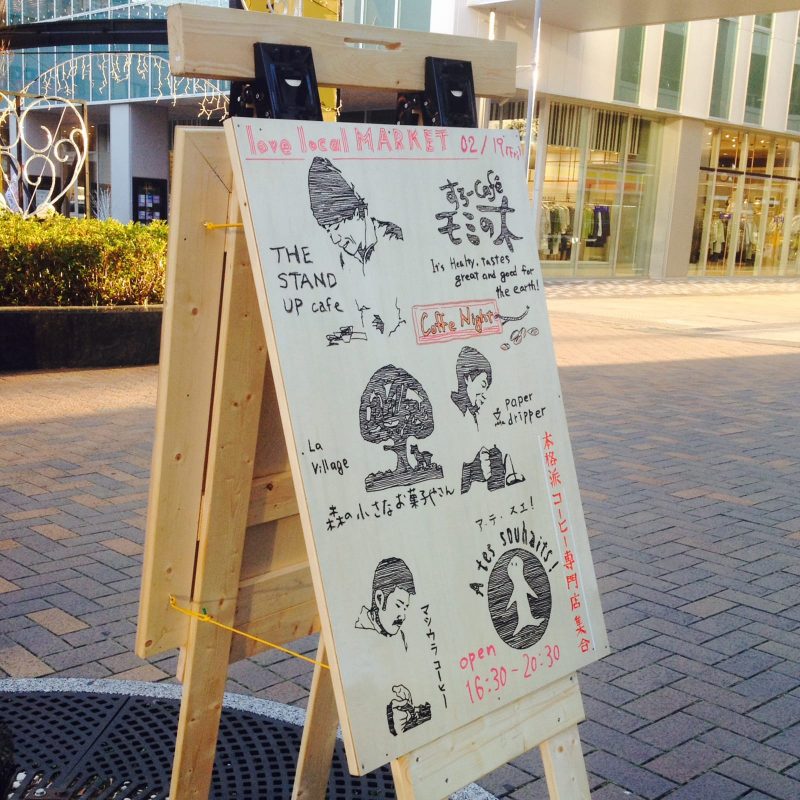 love local MARKET 02/19(Fri)
THE
STAND
UP cafe
すろーCafé
モミの木
It's Healty, tastes
great and good for
the earth!
Coffe Night
La
Village
森の小さなお菓子やさん
paper
dripper
本格派コーヒー専門店集合
ア・テ・スエ!
A tes souhaits!
マツウラコーヒー
open
16:30-20:30